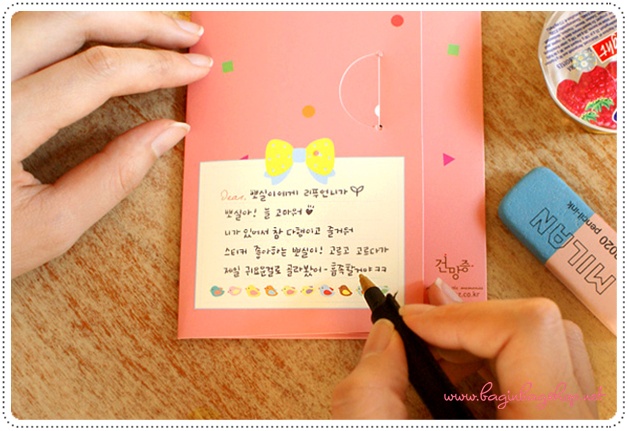 Dear. 뽓실이에게 리푸언니가
뽓실아! 늘 고마워
니가 있어서 참 다행이고 즐거워
스티커 좋아하는 뽓실아! 고르고 고르다가
제일 귀여운걸로 골라봤어~ 흡족할거야 ㅋㅋ
건망증
.co.kr
MILAN
2020 pencil-ink
ight
www.baginbagshop.net